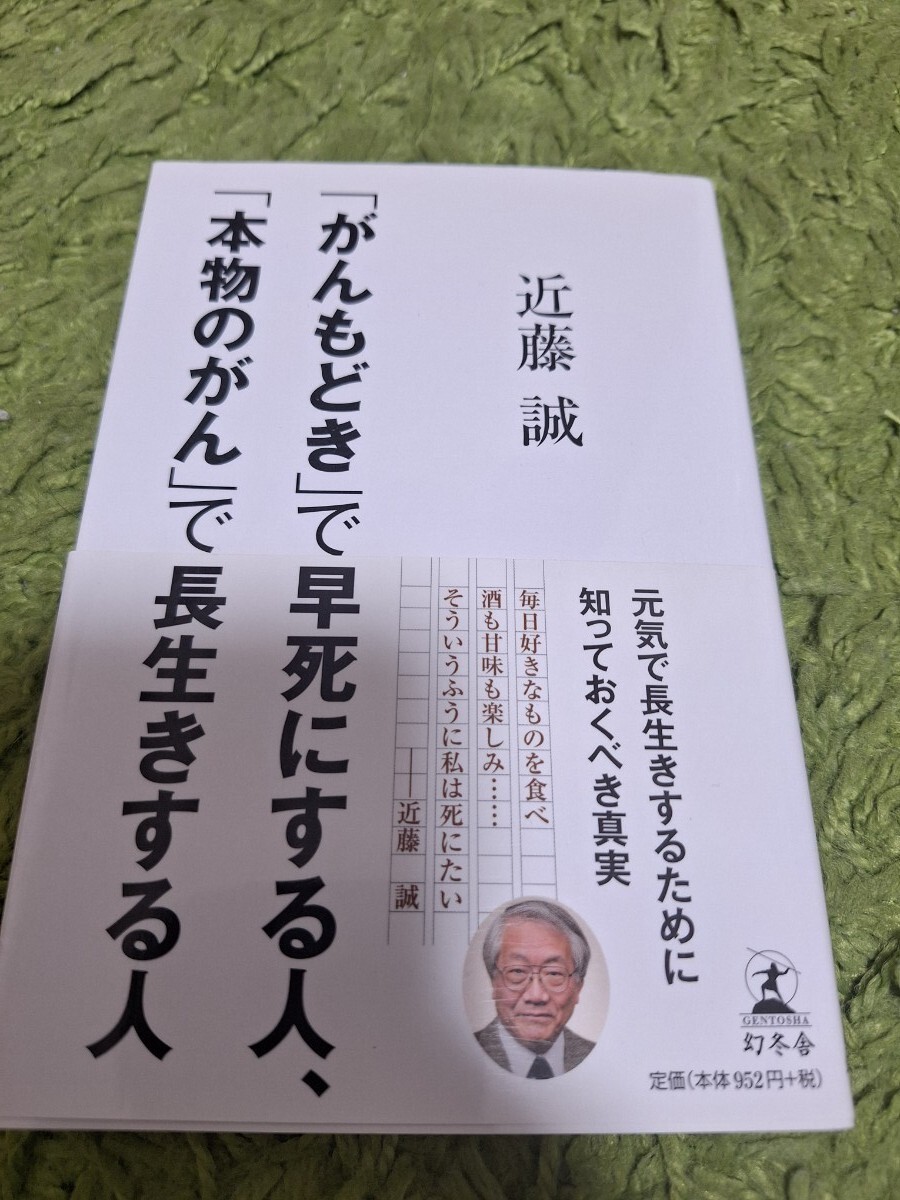 近藤 誠
「がんもどき」で早死にする人、
「本物のがん」で長生きする人
元気で長生きするために
知っておくべき真実
毎日好きなものを食べ
酒も甘味も楽しみ……
そういうふうに私は死にたい
――近藤 誠
GENTOSHA
幻冬舎
定価(本体952円+税)